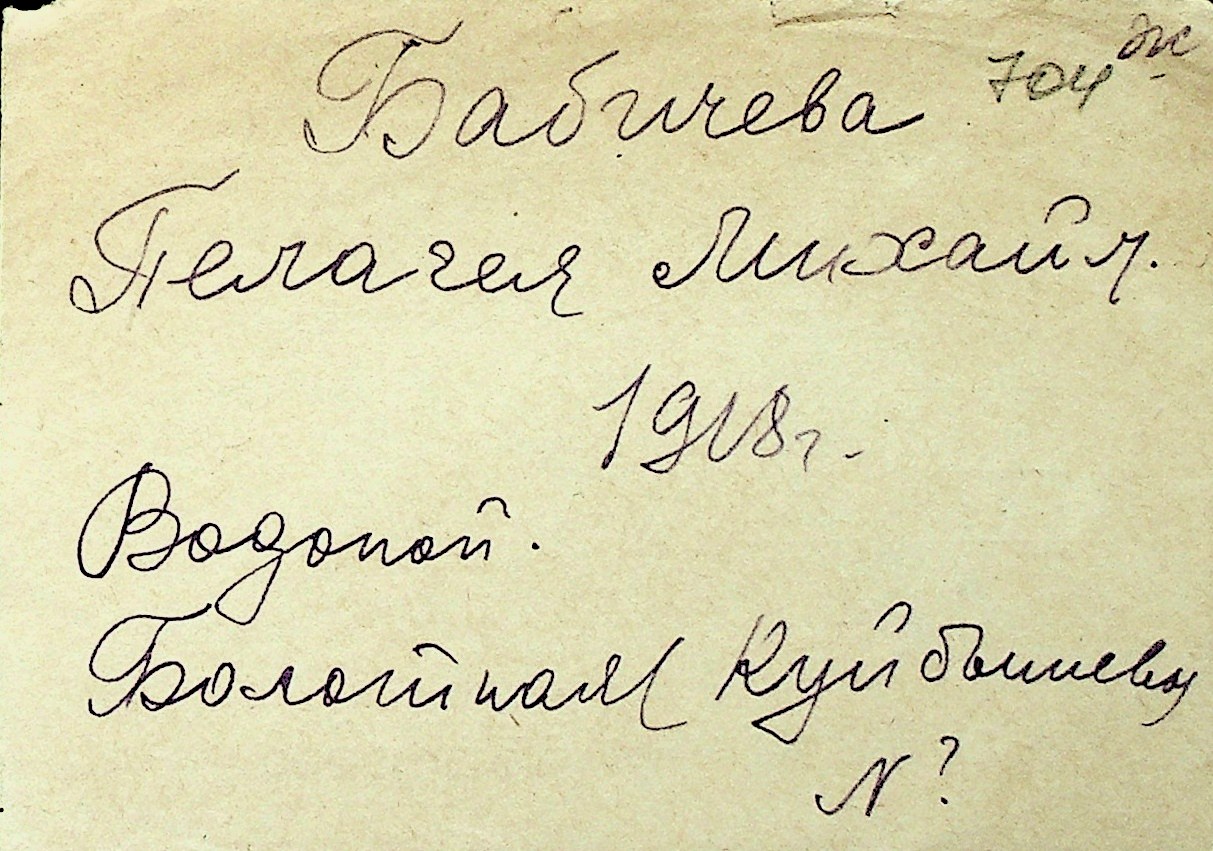 Бабичева 704 ж
Пелагея Михайл.
1918г.
Водопой.
Болотная (Куйбышева)
N ?